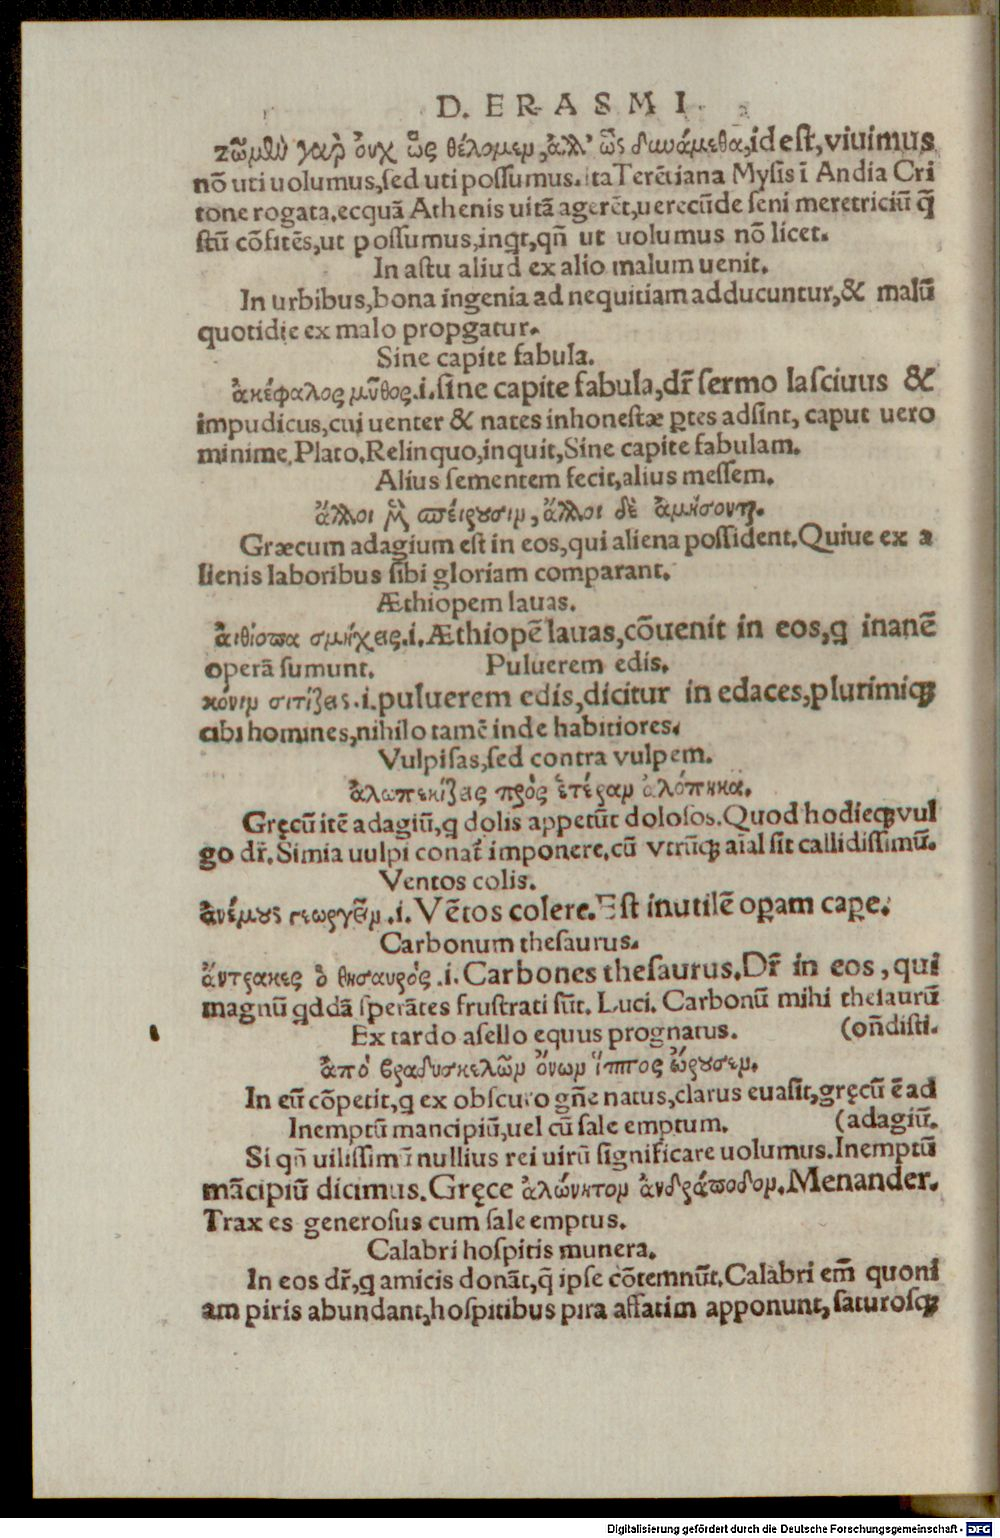 D. ERASMI
ζῶμεν γαρ ὀυχ ὣς θέλομεν, ἀλλ' ὣς δυνάμεθα, id est, viuimus
nō uti uolumus, sed uti possumus. ita Terētiana Mysis ī Andia Cri
tone rogata, ecquā Athenis uitā agerēt, uerecūde seni meretriciū q̄
stū cōfitēs, ut possumus, inqt, qn̄ ut uolumus nō licet.
In astu aliud ex alio malum uenit.
In urbibus, bona ingenia ad nequitiam adducuntur, & malū
quotidie ex malo propgatur.
Sine capite fabula.
ἀκέφαλος μῦθος .i. sine capite fabula, dr̄ sermo lasciuus &
impudicus, cui uenter & nates inhonestæ ꝑtes adsint, caput uero
minime. Plato. Relinquo, inquit, Sine capite fabulam.
Alius sementem fecit, alius messem.
ἄλλοι μὲν σπείρουσιν, ἄλλοι δὲ ἀμήσονται.
Græcum adagium est in eos, qui aliena possident. Quiue ex a
lienis laboribus sibi gloriam comparant.
Æthiopem lauas.
ἀιθίοπα σμήχεις .i. Æthiopē lauas, cōuenit in eos, q inanē
operā sumunt. Puluerem edis.
κόνιν σιτίζεις .i. puluerem edis, dicitur in edaces, plurimiqꝫ
cibi homines, nihilo tamē inde habitiores.
Vulpisas, sed contra vulpem.
ἀλωπεκίζεις πρὸς ἑτέραν ἀλόπηκα.
Gręcū itē adagiū, q dolis appetūt dolosos. Quod hodieqꝫ vul
go dr̄. Simia uulpi conat̄ imponere, cū vtrūqꝫ aīal sit callidissimū.
Ventos colis.
ἀνέμους γεωργεῖν .i. Vētos colere. Est inutilē oꝑam caꝑe.
Carbonum thesaurus.
ἄντρακες ὁ θησαυρός .i. Carbones thesaurus. Dr̄ in eos, qui
magnū qddā sperātes frustrati sūt. Luci. Carbonū mihi thesaurū
Ex tardo asello equus prognatus. (on̄disti.
ἀπὸ βραδυσκελῶν ὄνων ἵππος ὤρουσεν.
In eū cōpetit, q ex obscuro gn̄e natus, clarus euasit, gręcū ē ad
Inemptū mancipiū, uel cū sale emptum. (adagiū.
Si qn̄ uilissimū nullius rei uirū significare uolumus. Inemptū
mācipiū dicimus. Gręce ἁλώνητον ἀνδράποδον. Menander.
Trax es generosus cum sale emptus.
Calabri hospitis munera.
In eos dr̄, q amicis donāt, q̄ ipse cōtemnūt. Calabri em̄ quoni
am piris abundant, hospitibus pira affatim apponunt, saturosqꝫ
Digitalisierung gefördert durch die Deutsche Forschungsgemeinschaft - DFG